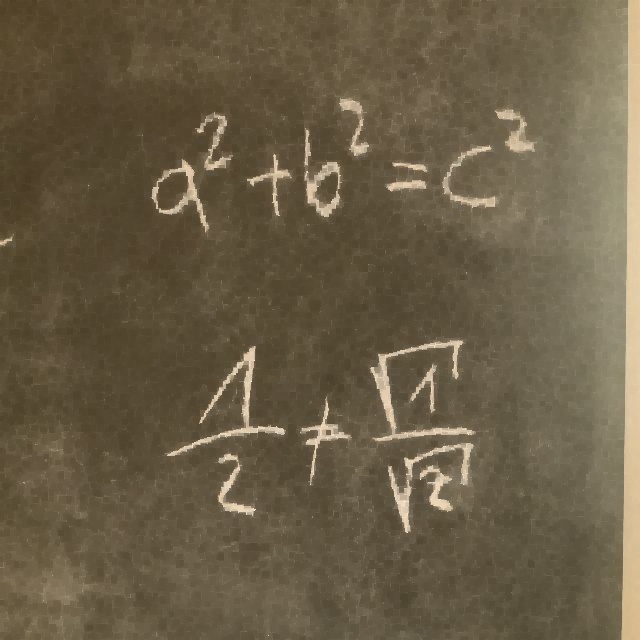 a² + b² = c²
1/2 + √1/√2